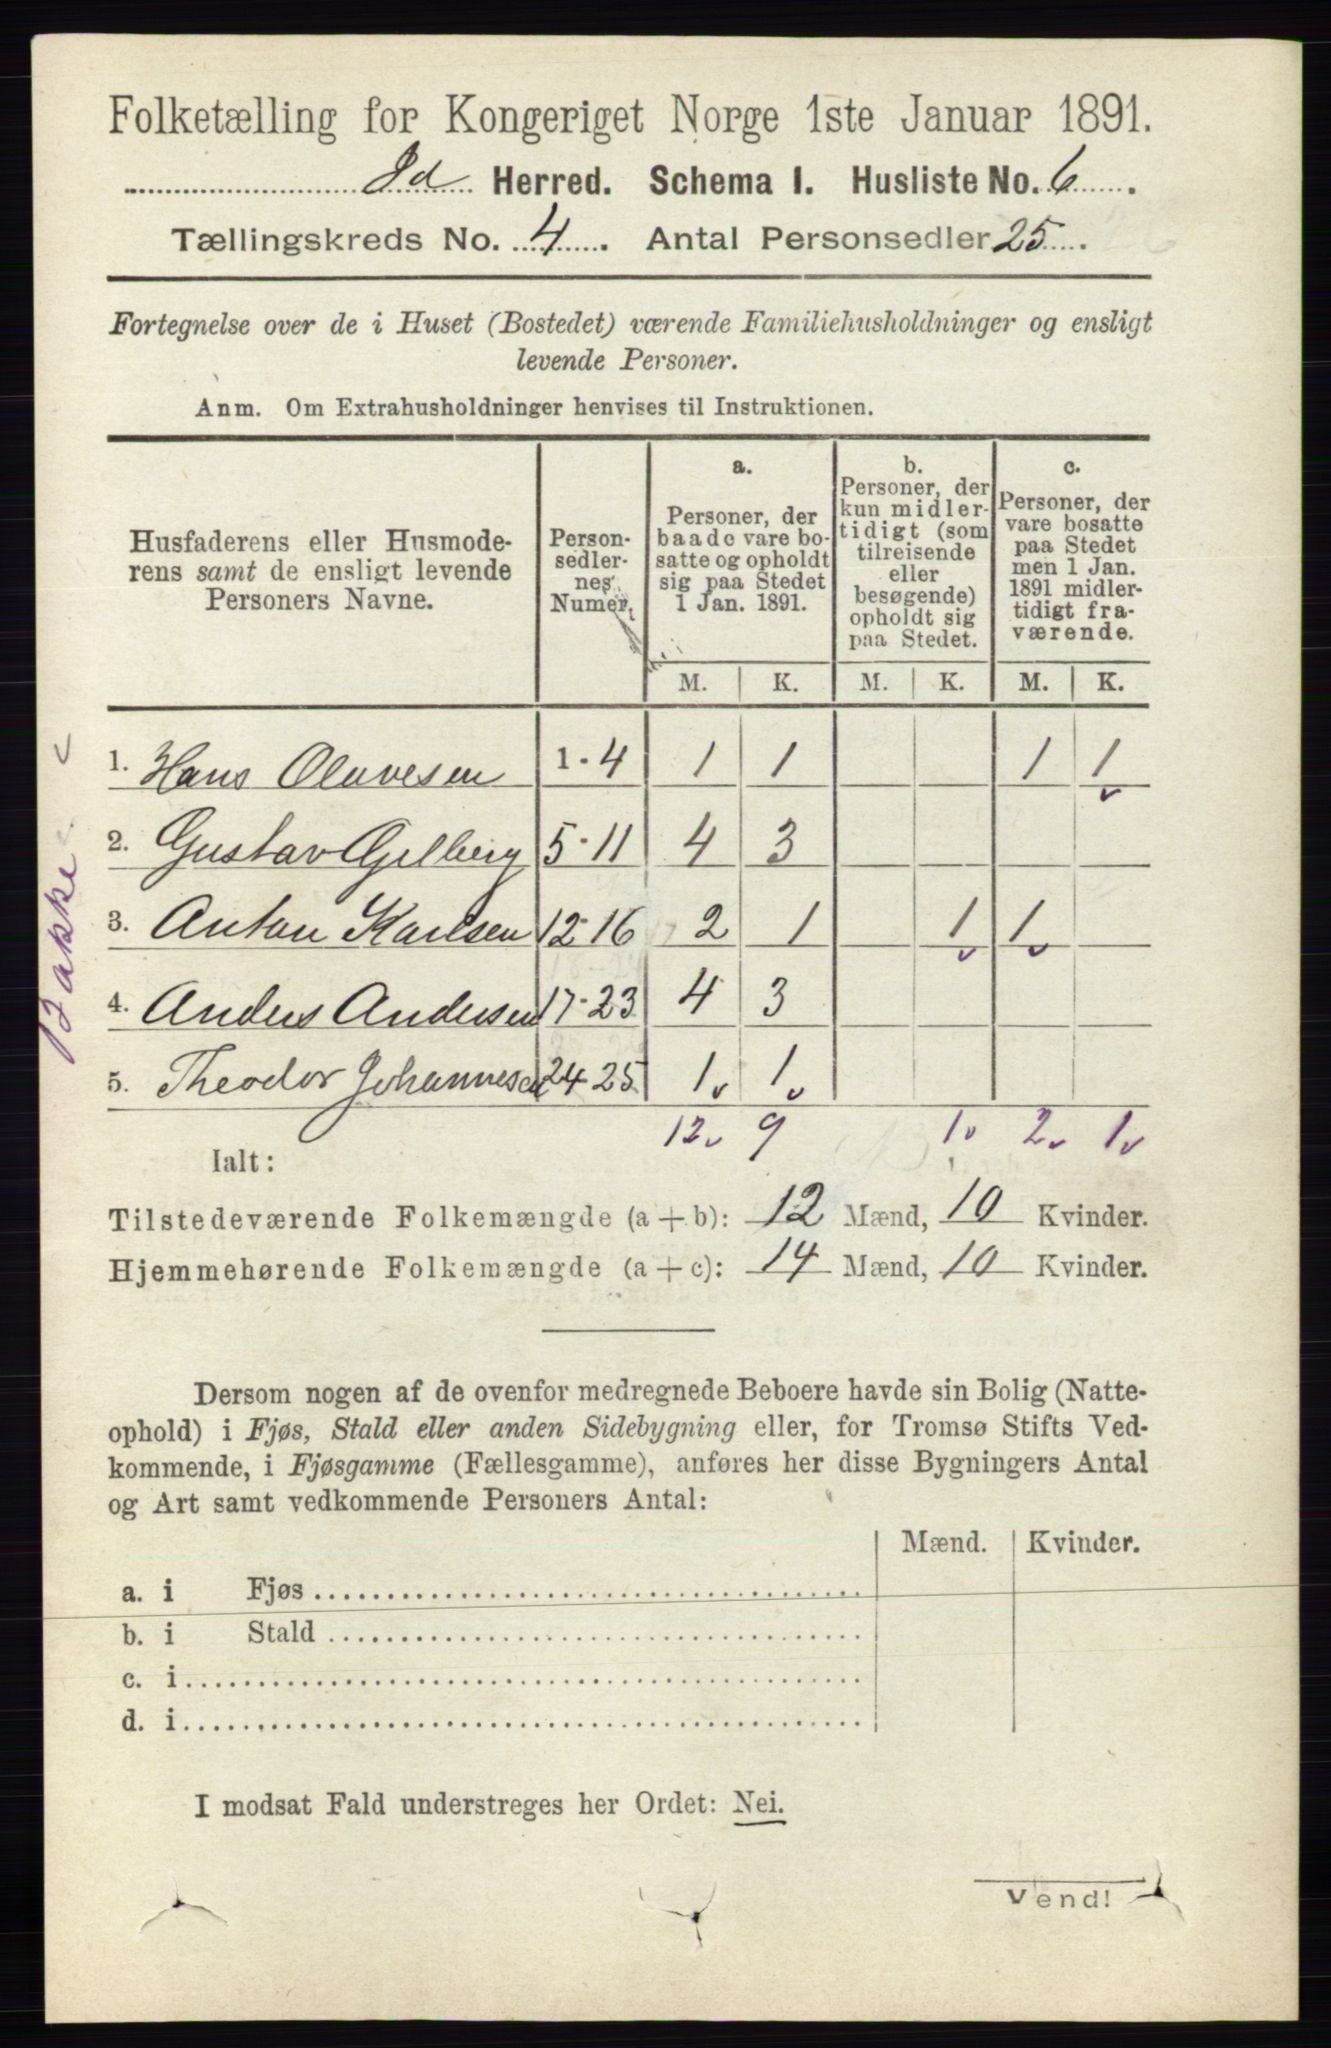 Folketælling for Kongeriget Norge 1ste Januar 1891.
Id Herred. Schema I. Husliste No. 6.
Tællingskreds No. 4. Antal Personsedler 25.
Fortegnelse over de i Huset (Bostedet) værende Familiehusholdninger og ensligt
levende Personer.
Anm. Om Extrahusholdninger henvises til Instruktionen.
Husfaderens eller Husmode-
rens samt de ensligt levende
Personers Navne.
Person-
sedler-
nes
Numer.
a.
Personer, der
baade vare bo-
satte og opholdt
sig paa Stedet
1 Jan. 1891.
b.
Personer, der
kun midler-
tidigt (som
tilreisende
eller
besøgende)
opholdt sig
paa Stedet.
c.
Personer, der
vare bosatte
paa Stedet
men 1 Jan.
1891 midler-
tidigt fra-
værende.
M. K. M. K. M. K.
1. Hans Olavesen 1-4 1 1 1 1
2. Gustav Gjelberg 5-11 4 3
3. Anton Karlsen 12-16 2 1 1 1
4. Anders Andersen 17-23 4 3
5. Theodor Johannesen 24-25 1 1
12 9 1 2 1
Ialt:
Tilstedeværende Folkemængde (a + b): 12 Mænd, 10 Kvinder.
Hjemmehørende Folkemængde (a + c): 14 Mænd, 10 Kvinder.
Dersom nogen af de ovenfor medregnede Beboere havde sin Bolig (Natte-
ophold) i Fjøs, Stald eller anden Sidebygning eller, for Tromsø Stifts Ved-
kommende, i Fjøsgamme (Fællesgamme), anføres her disse Bygningers Antal
og Art samt vedkommende Personers Antal:
Mænd. Kvinder.
a. i Fjøs
b. i Stald
c. i
d. i
I modsat Fald understreges her Ordet: Nei.
Vend!
Bakke